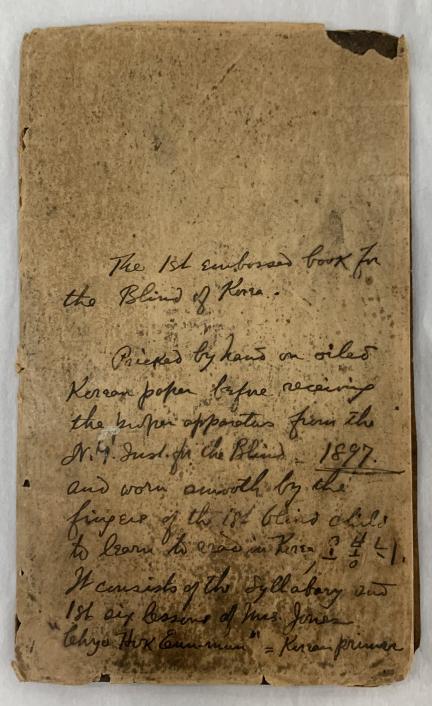 The 1st embossed book for
the Blind of Korea.
Pricked by hand on oiled
Korean paper before receiving
the proper apparatus from the
N.Y. Inst. for the Blind - 1897.
and worn smooth by the
fingers of the 1st blind child
to learn to read in Korea,
It consists of the Syllabary and
1st six lessons of Mrs. Jones
"Cho Hok Eun-mun" = Korean primer